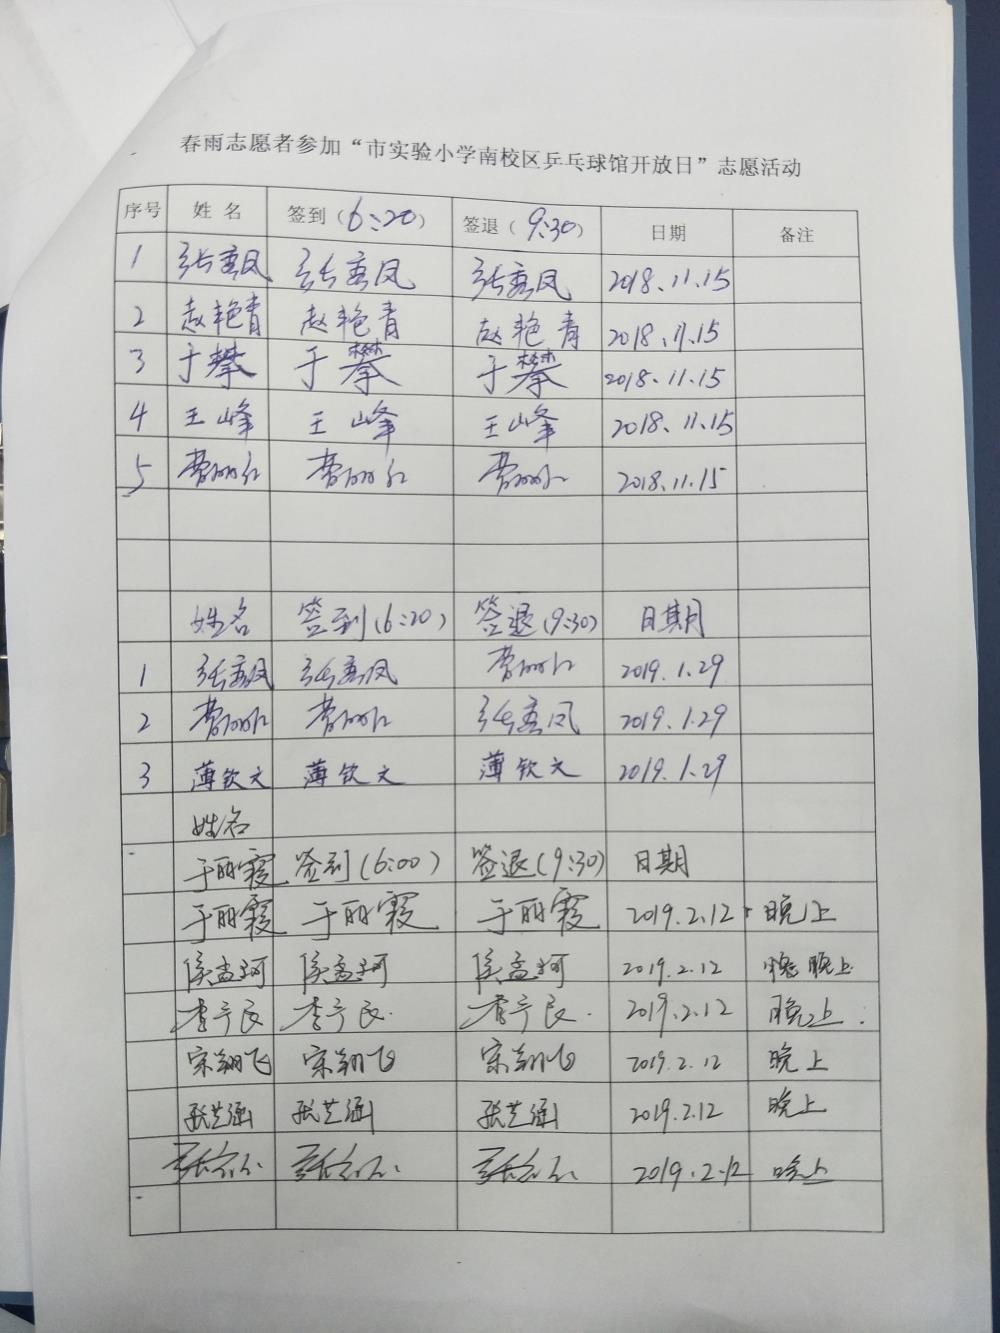 春雨志愿者参加“市实验小学南校区乒乓球馆开放日”志愿活动
序号 姓 名 签到（6:20） 签退（9:30） 日期 备注
1 张 凤 张 凤 张 凤 2018.11.15
2 赵艳青 赵艳青 赵艳青 2018.11.15
3 于攀 于攀 于攀 2018.11.15
4 王峰 王峰 王峰 2018.11.15
5 2018.11.15
姓名 签到(6:20) 签退(9:30) 日期
1 张 凤 张 凤 2019.1.29
2 张 凤 2019.1.29
3 薄钦文 薄钦文 薄钦文 2019.1.29
姓名
于丽霞 签到(6:00) 签退(9:30) 日期
于丽霞 于丽霞 于丽霞 2019.2.12 晚上
侯孟珂 侯孟珂 侯孟珂 2019.2.12 晚上
李 良 李 良 李 良 2019.2.12 晚上
宋翔飞 宋翔飞 宋翔飞 2019.2.12 晚上
张艺涵 张艺涵 张艺涵 2019.2.12 晚上
2019.2.12 晚上